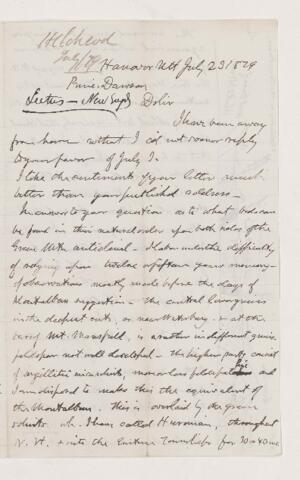 Hanover NH July 23 1879
Princ. Dawson
Dr Sir
I have been away
from home so that I cd not sooner reply
to your favor of July 1.
I like the sentiments of your letter much
better than your published address —
In answer to your question as to what rocks can
be found in their natural order upon both sides of the
Green Mtn anticlinal — I labor under the difficulty
of relying upon twelve or fifteen years memory —
of observations mostly made before the days of
Montalban suggestion — The central
in the deepest cuts, or near Waterbury & at the
of Mt. Mansfield, is a rather indifferent gneiss
feldspar not well developed — the higher parts consist
of argillitic mica schists, more or less and
I am disposed to make this the equivalent of
the Montalban. This is overlaid by the green
schists wh. I have called Huronian, throughout
& into the Eastern Townships for 30 or 40 m